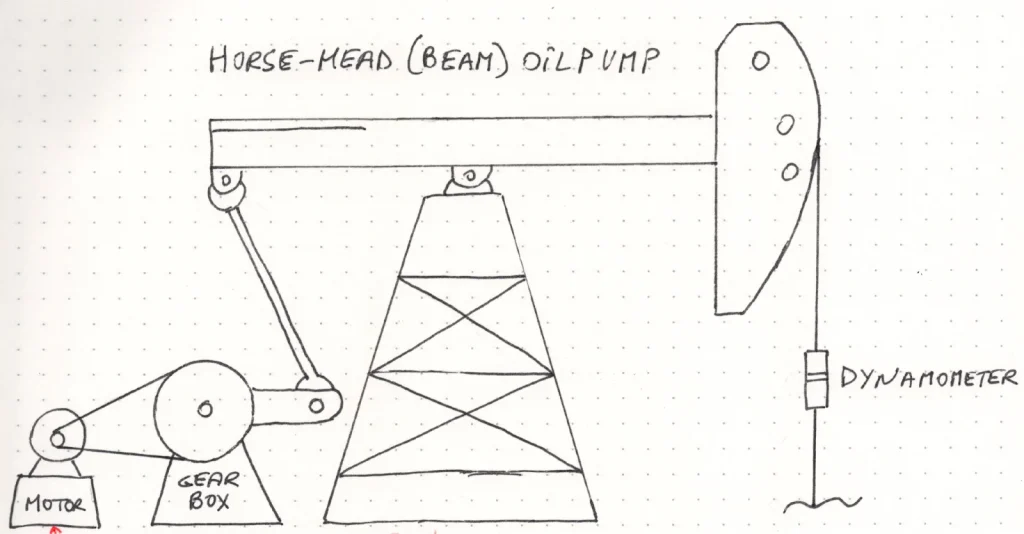 HORSE-HEAD (BEAM) OILPUMP
DYNAMOMETER
GEAR
BOX
MOTOR